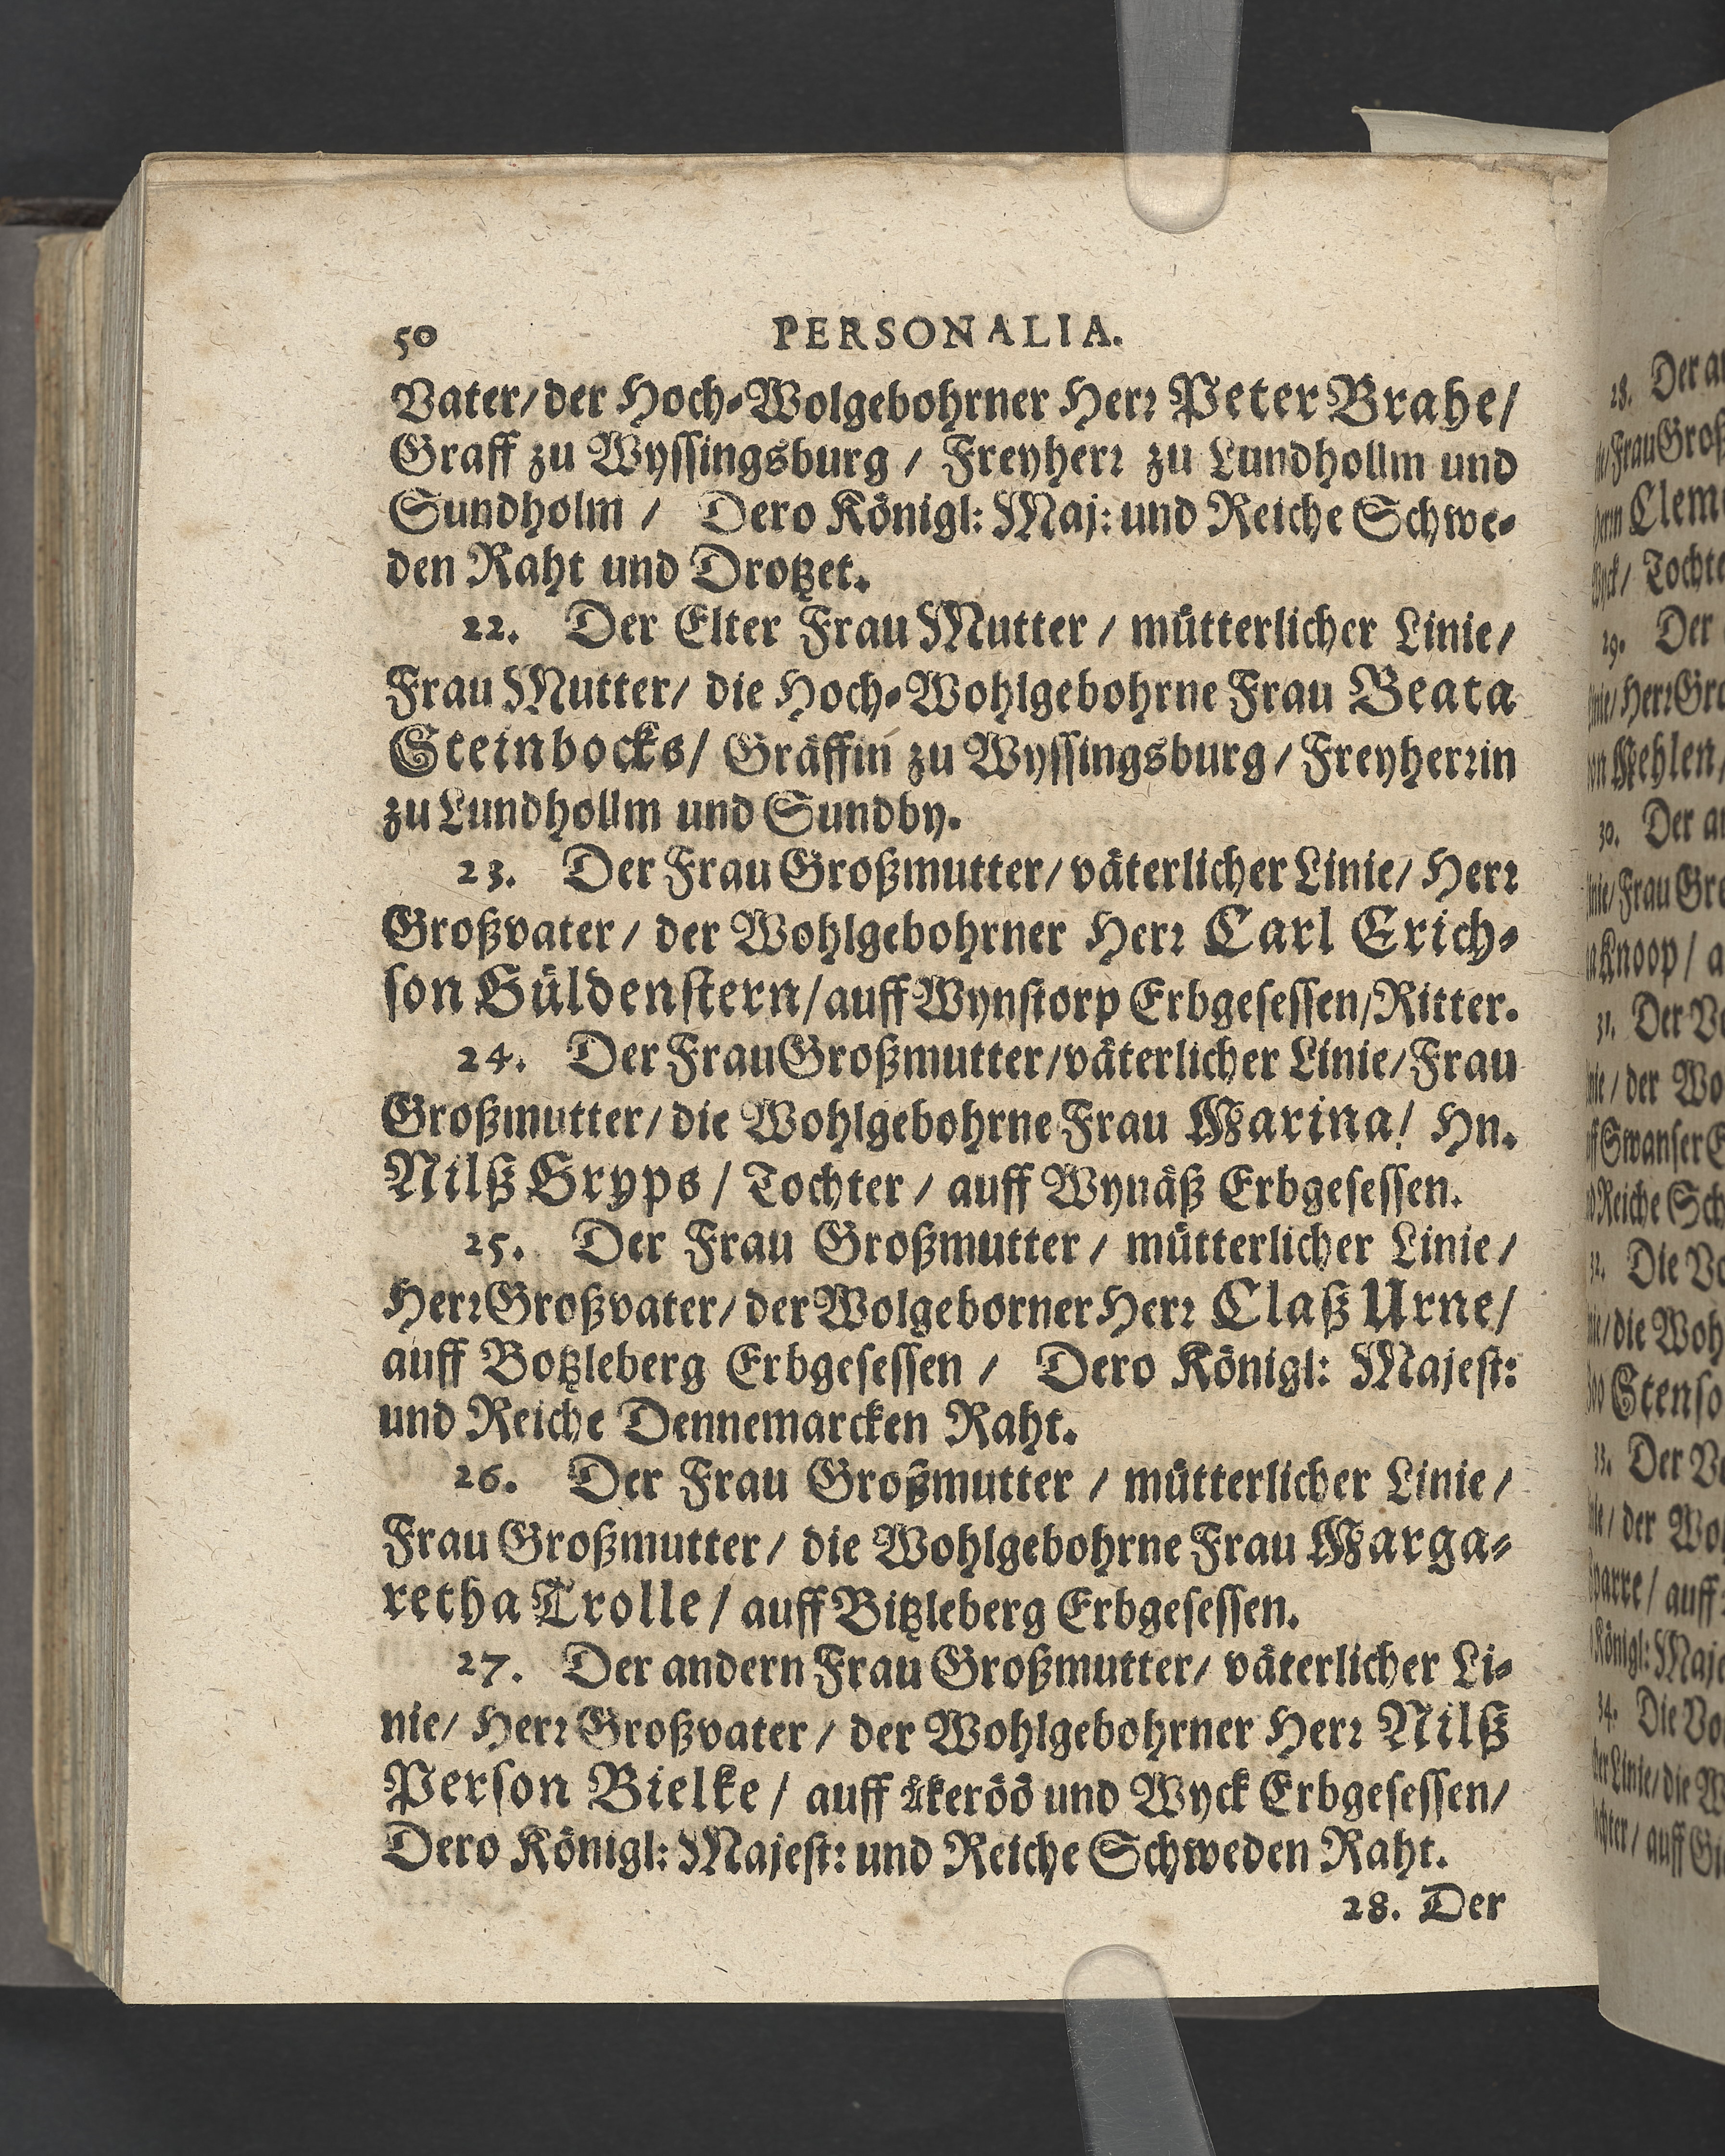 50 PERSONALIA.
Vater/ der Hoch-Wolgebohrner Herr Peter Brahe/
Graff zu Wyssingsburg / Freyherr zu Lundhollm und
Sundholm / Dero Königl: Maj: und Reiche Schwe-
den Raht und Drotzet.
22. Der Elter Frau Mutter / mütterlicher Linie/
Frau Mutter/ die Hoch-Wohlgebohrne Frau Beata
Steinbocks/ Gräffin zu Wyssingsburg / Freyherrin
zu Lundhollm und Sundby.
23. Der Frau Großmutter/ väterlicher Linie/ Herr
Großvater / der Wohlgebohrner Herr Carl Erich-
son Güldenstern/ auff Wynstorp Erbgesessen/ Ritter.
24. Der Frau Großmutter/ väterlicher Linie/ Frau
Großmutter/ die Wohlgebohrne Frau Marina/ Hn.
Nilß Gryps / Tochter / auff Wynäß Erbgesessen.
25. Der Frau Großmutter / mütterlicher Linie /
Herr Großvater/ der Wolgeborner Herr Claß Urne/
auff Botzleberg Erbgesessen / Dero Königl: Majest:
und Reiche Dennemarcken Raht.
26. Der Frau Großmutter / mütterlicher Linie /
Frau Großmutter / die Wohlgebohrne Frau Marga-
retha Trolle / auff Bitzleberg Erbgesessen.
27. Der andern Frau Großmutter/ väterlicher Li-
nie/ Herr Großvater / der Wohlgebohrner Herr Nilß
Person Bielke / auff åkeröö und Wyck Erbgesessen/
Dero Königl: Majest: und Reiche Schweden Raht.
28. Der
28. Der
Frau Groß
Clem
Tochte
29. Der
Herr Gro
Mehlen/
30. Der
Frau Gro
Knoop / a
31. Der
/ der Wo
Swanser E
Reiche Sch
Die
/ die Woh
Stenso
33. Der
/ der Wo
/ auff
Königl: Maje
34. Die
Linie/ die W
/ auff